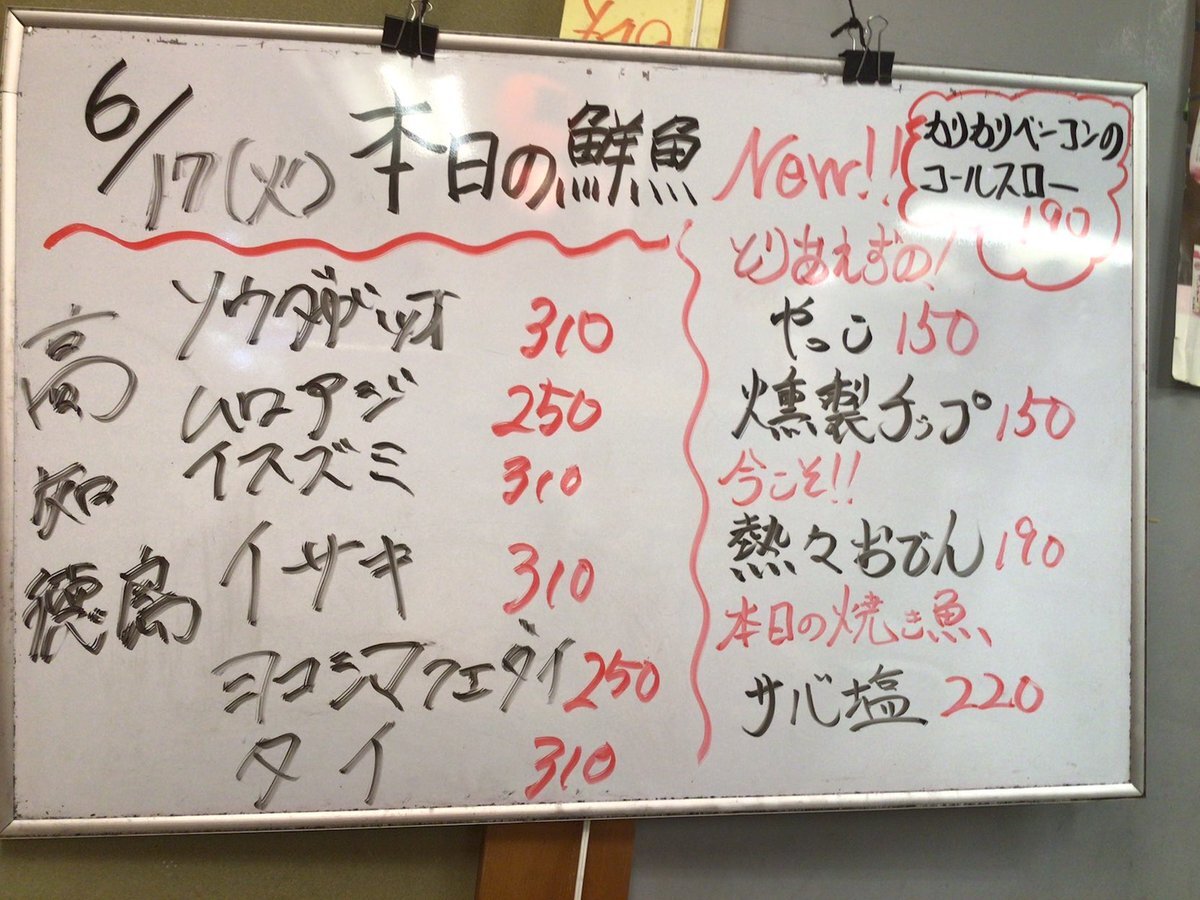 6/17(火) 本日の鮮魚
高知
ソウダガツオ 310
ムロアジ 250
イスズミ 310
徳島
イサキ 310
ヨコシマフエダイ 250
タイ 310
New!!
カリカリベーコンの
コールスロー
190
とりあえずの!
やっこ 150
燻製チップ 150
今こそ!!
熱々おでん 190
本日の焼き魚、
サバ塩 220